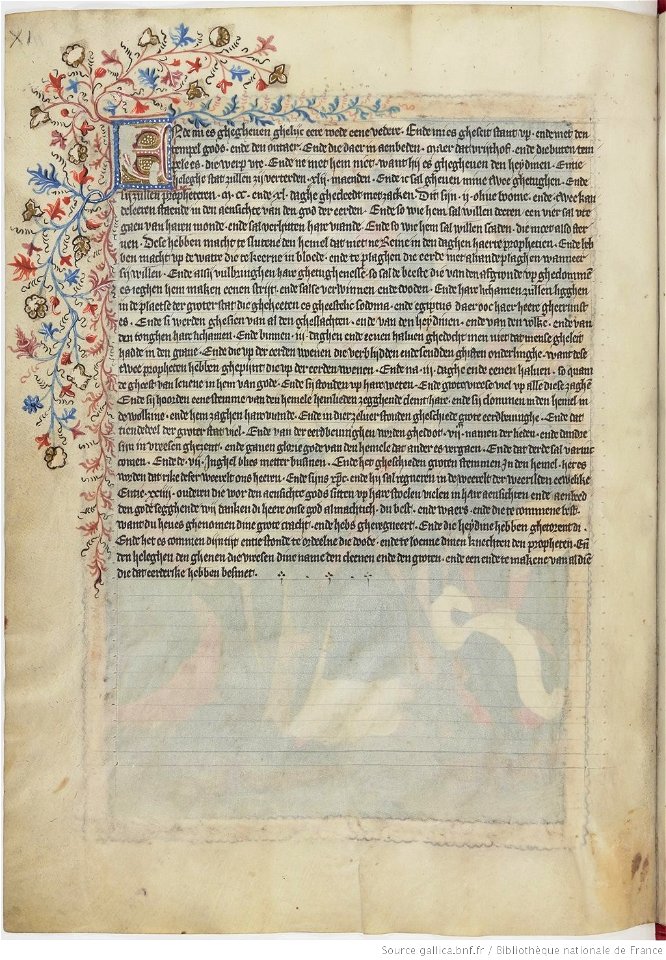 XI
Ende mi es ghegheuen ghelijc eere roede eene vedere. Ende mi es gheseit stant vp. ende met den
tempel gods. ende den outaer. Ende die daer in aenbeden. maer dat vrijthof. ende die buten tem
pele es. die werp vte. Ende ne met hem niet. want hij es ghegheuen den heydinen. Entie
heleghe stat zullen zij verterden. xlij. maenden. Ende ic sal gheuen mine twee ghetughen. Ende
zij zullen propheteren. M. CC. ende. xl. daghe ghecleedt met zacken. Dit sijn. ij. oliue boome. ende twee kan
deleeren staende in den aensichte van den god der eerden. Ende so wie hem sal willen deeren. een vier sal vte
gaen van haren monde. ende sal verhitten haer viande. Ende so wie hem sal willen scaden. die moet also ster
uen. Dese hebben macht te slutene den hemel dat niet ne Reine in den daghen haerre prophetien. Ende heb
ben macht vp de watre die te keerne in bloede. ende te plaghene die eerde met alrande plaghen wanneer
sij willen. Ende alsij vulbringhen hare ghetughenesse. so sal de beeste die van den afgronde vp gheclommen
es ieghen hem maken eenen strijt. ende salse verwinnen ende dooden. Ende hare lichamen zullen ligghen
in de plaetse der groter stat die gheheeten es gheestelic sodoma. ende egiptus daer ooc haer heere ghecruust
es. Ende si werden ghesien van al den gheslachten. ende van den heydinen. ende van den volke. ende van
den tonghen hare lichamen. Ende binnen. iij. daghen ende eenen haluen
hadde in den graue. Ende die vp der eerden wonen die verblijdden ende sendden ghiften onderlinghe. want dese
twee propheten hebben ghepijnt die vp der eerden wonen. Ende na. iij. daghe ende eenen haluen. so quam
de gheest van leuene in hem van gode. Ende sij stonden vp hare voeten. Ende grote vreese viel vp alle diese zaghen
Ende sij hoorden eene stemme van den hemele hemlieden zegghende clemt hare. Ende sij clommen in den hemel in
de wolkine. ende hem zaghen hare viande. Ende in dier zeluer stonden gheschiede grote eerdbeuinghe. Ende dat
tiendedeel der groter stat viel. Ende van der eerdbeuinghen worden ghedoot. vij. namen der lieden. ende dandre
sijn in vreesen ghezent. ende gauen glorie gode van den hemele dat ander es vergaen. Ende dat derde sal varinc
comen. Ende de. vij. Inghel blies metter businen. Ende het gheschieden groten stemmen in den hemel. het es
worden dat rike deser weerelt ons heeren. Ende sijns xpc. ende hij sal regneren in de weerelt der weerelden eewelike
Entie. xxiiij. ouderen die voor den aensichte gods sitten vp hare stoelen vielen in hare aensichten ende aenbeed
den gode segghende wij danken di heere onse god almachtich. du best. ende waers. ende die te commene best.
want du heues ghenomen dine grote cracht. ende hebs gheregneert. Ende die heydine hebben ghetorent di.
Ende het es commen dijn tijt entie stonde te ordeelne die doode. ende te loenne dinen knechten den propheten. En
den heleghen den ghenen die vreesen dine name den cleenen ende den groten. ende
die dat eerterike hebben besmet.
Source gallica.bnf.fr / Bibliothèque nationale de France